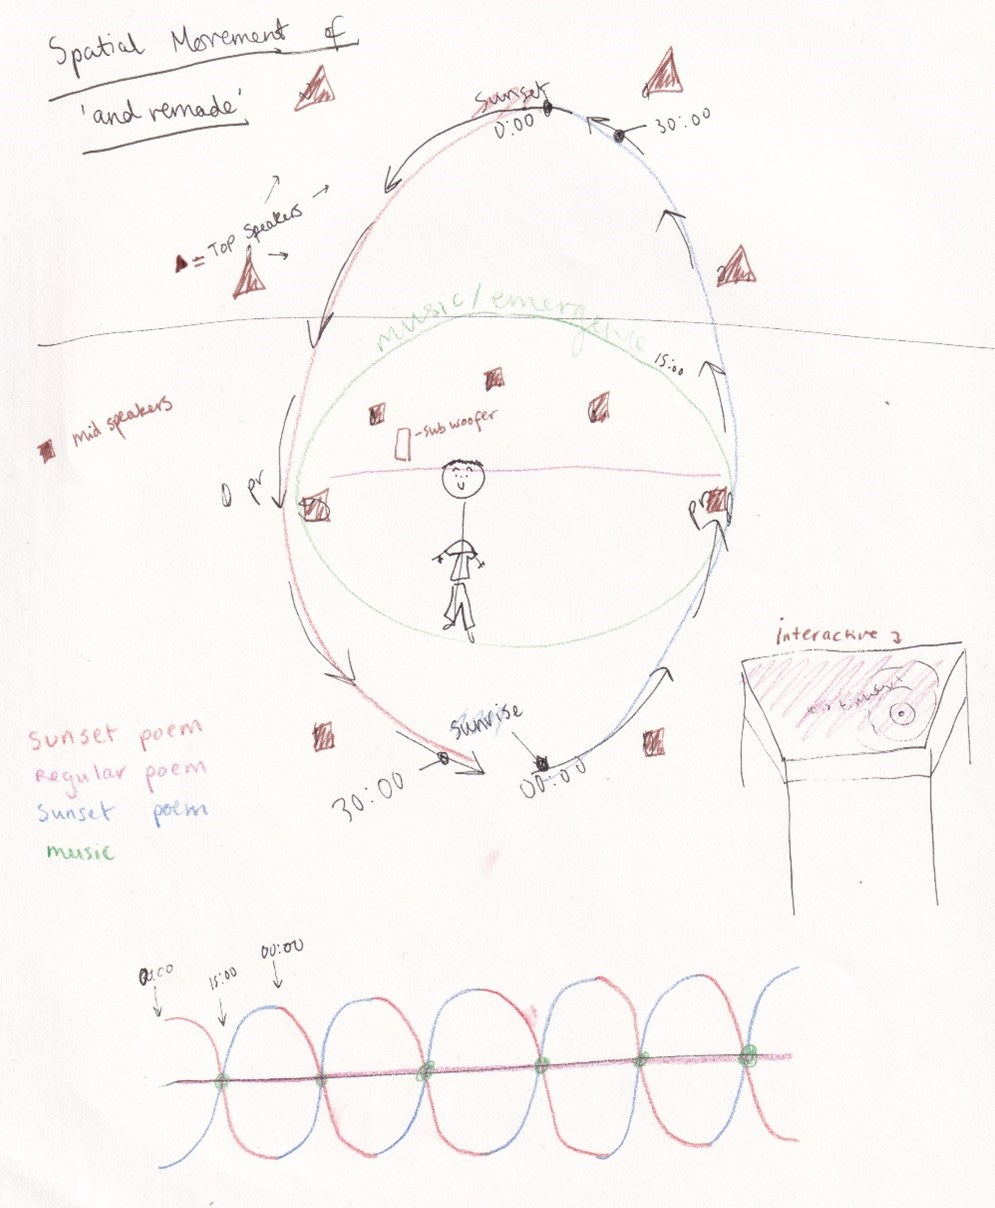 Spatial Movement of
'and remade'
sunset
0:00
30:00
▲ = Top Speakers
music/emergence
15:00
mid speakers
-subwoofer
pr
pr
interactive
sunrise
30:00
00:00
Sunset poem
Regular poem
Sunset poem
music
00:00
15:00
00:00